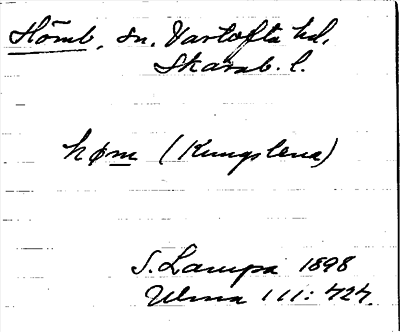 Hömb, sn. Vartofta hd,
Skarab. l.
høm (Kungslena)
S. Lampa 1898
Ulma 111: 424.